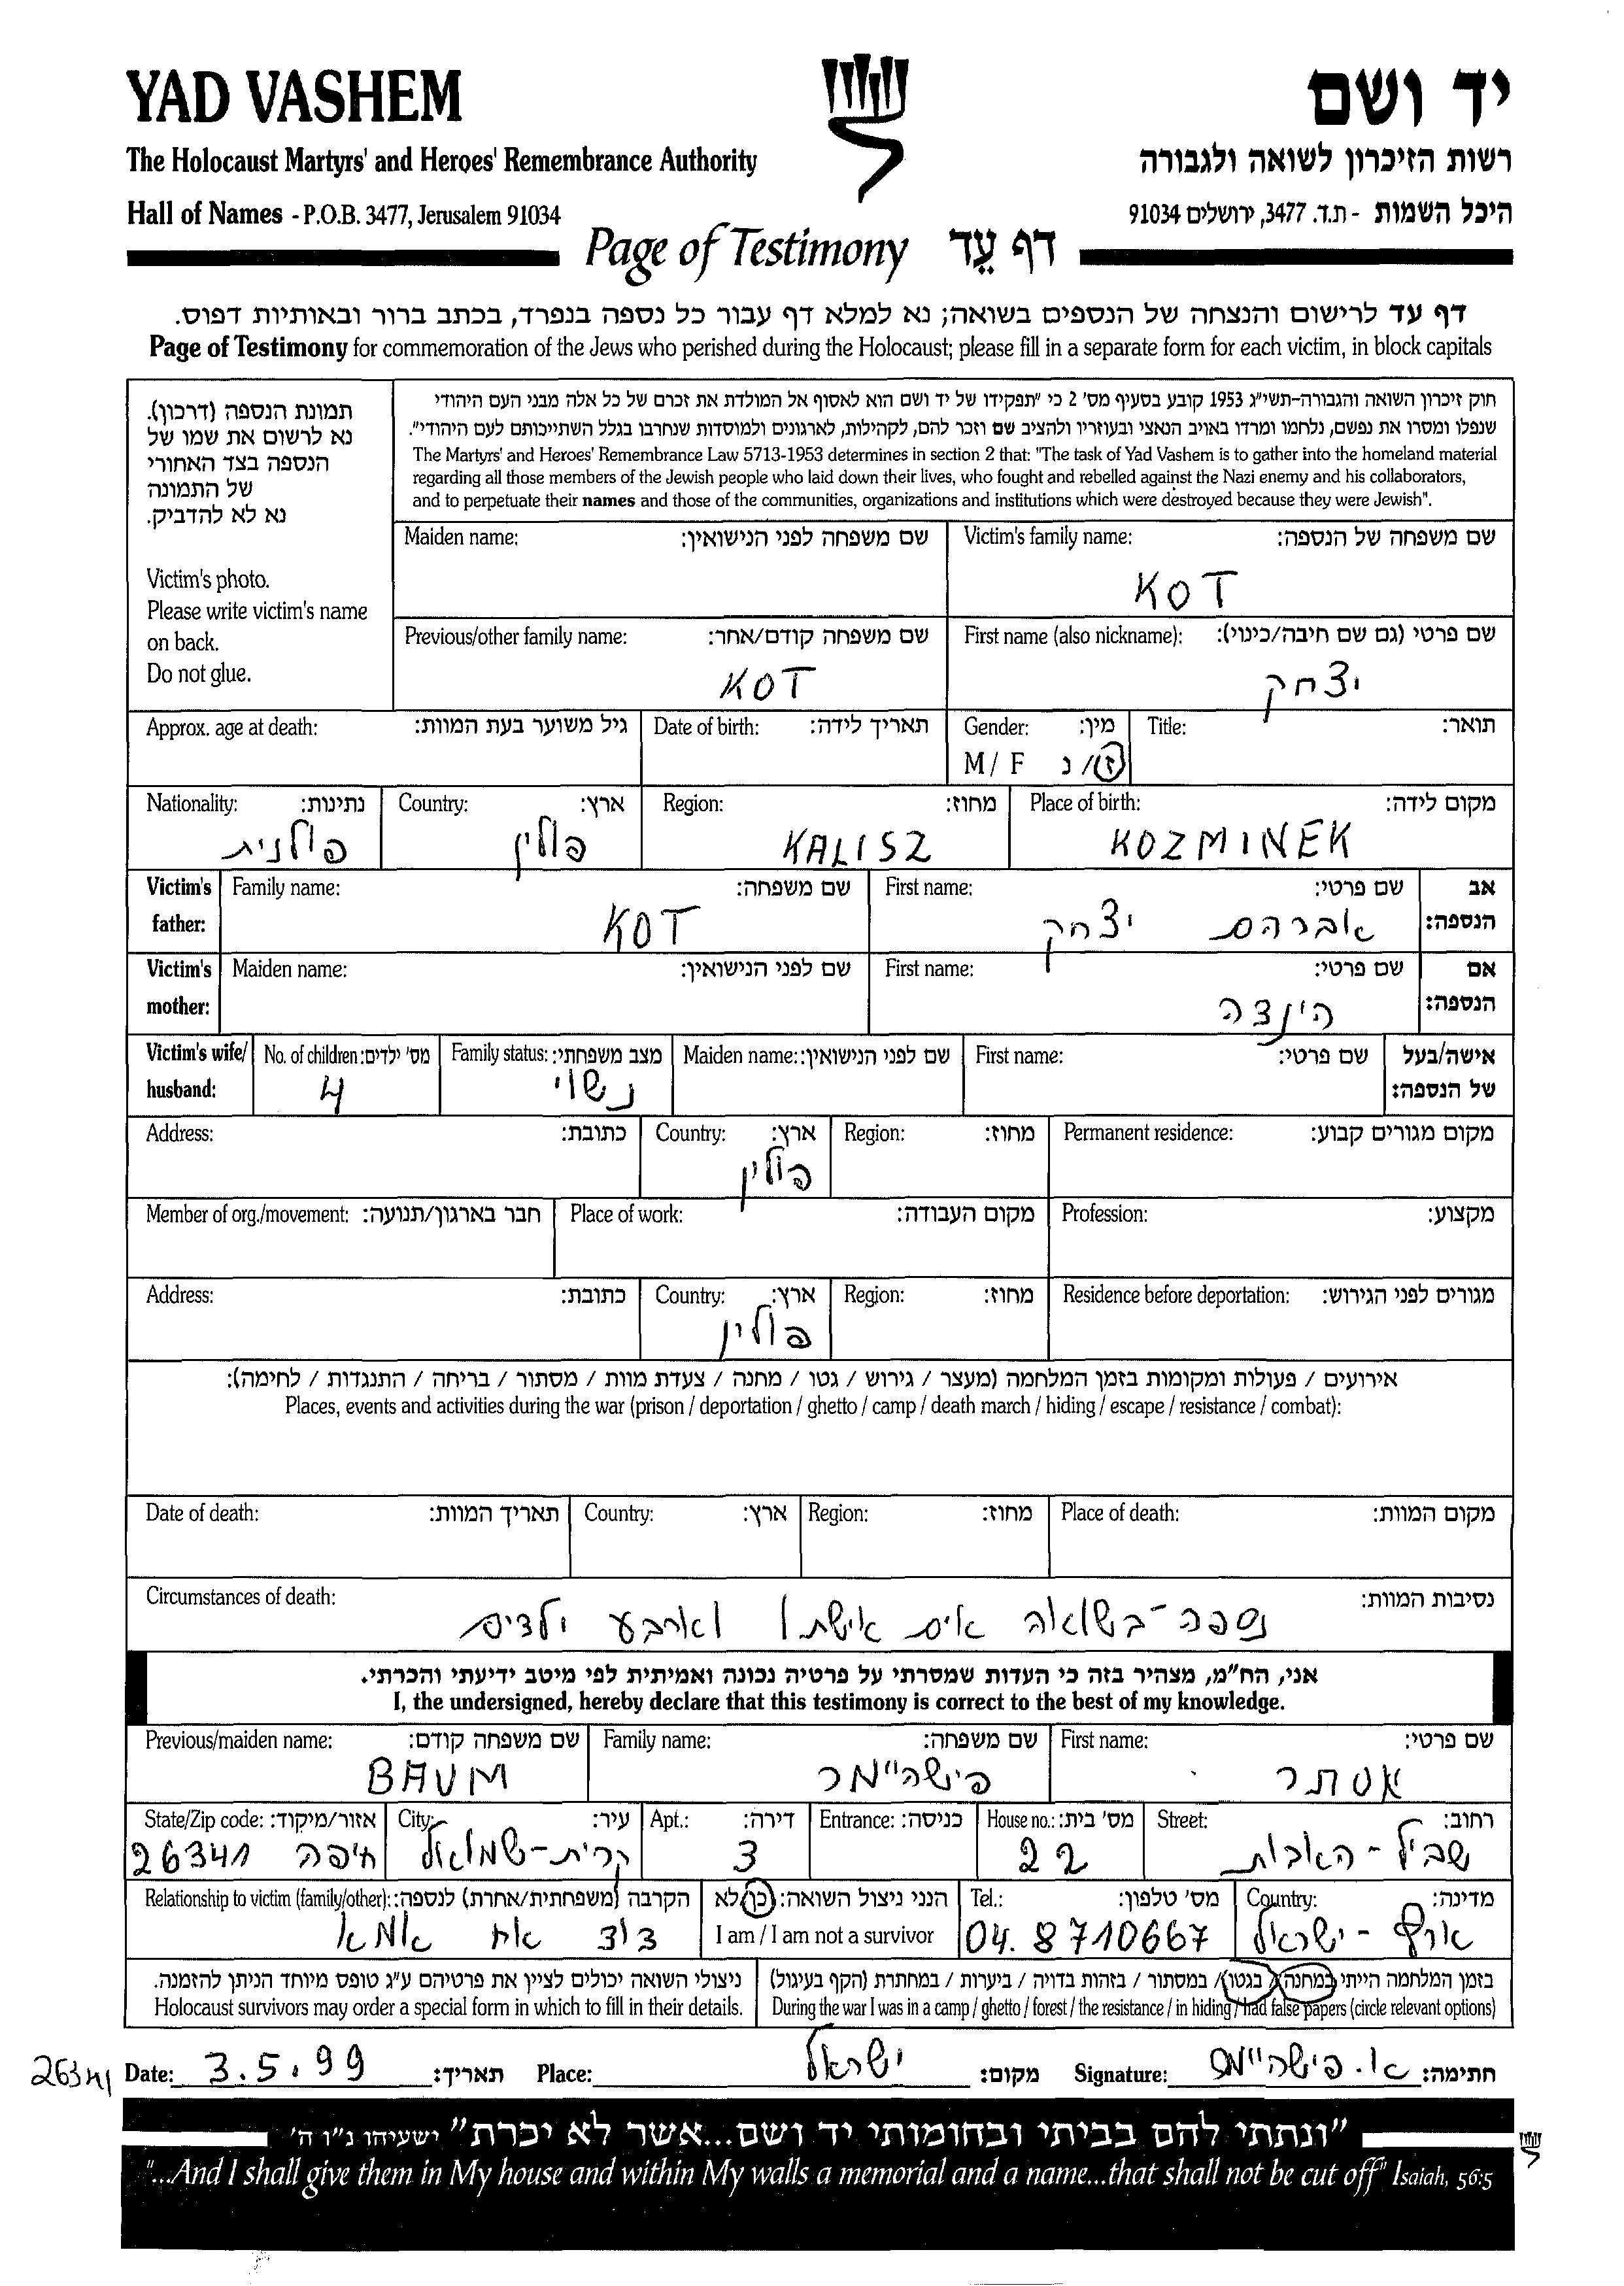 YAD VASHEM
יד ושם
The Holocaust Martyrs' and Heroes' Remembrance Authority
רשות הזיכרון לשואה ולגבורה
Hall of Names - P.O.B. 3477, Jerusalem 91034
היכל השמות - ת.ד. 3477, ירושלים 91034
Page of Testimony דף עֵד
דף עד לרישום והנצחה של הנספים בשואה; נא למלא דף עבור כל נספה בנפרד, בכתב ברור ובאותיות דפוס.
Page of Testimony for commemoration of the Jews who perished during the Holocaust; please fill in a separate form for each victim, in block capitals
תמונת הנספה (דרכון).
נא לרשום את שמו של
הנספה בצד האחורי
של התמונה
נא לא להדביק.
Victim's photo.
Please write victim's name
on back.
Do not glue.
חוק זיכרון השואה והגבורה-תשי"ג 1953 קובע בסעיף מס' 2 כי "תפקידו של יד ושם הוא לאסוף אל המולדת את זכרם של כל אלה מבני העם היהודי
שנפלו ומסרו את נפשם, נלחמו ומרדו באויב הנאצי ובעוזריו ולהציב שם וזכר להם, לקהילות, לארגונים ולמוסדות שנחרבו בגלל השתייכותם לעם היהודי".
The Martyrs' and Heroes' Remembrance Law 5713-1953 determines in section 2 that: "The task of Yad Vashem is to gather into the homeland material
regarding all those members of the Jewish people who laid down their lives, who fought and rebelled against the Nazi enemy and his collaborators,
and to perpetuate their names and those of the communities, organizations and institutions which were destroyed because they were Jewish".
Victim's family name: שם משפחה של הנספה:
KOT
Maiden name: שם משפחה לפני הנישואין:
First name (also nickname): שם פרטי (גם שם חיבה/כינוי):
יצחק
Previous/other family name: שם משפחה קודם/אחר:
KOT
Title: תואר:
Gender: מין:
M / F ז/נ
Date of birth: תאריך לידה:
Approx. age at death: גיל משוער בעת המוות:
Place of birth: מקום לידה:
KOZMINEK
Region: מחוז:
KALISZ
Country: ארץ:
פולין
Nationality: נתינות:
פולנית
Victim's father: אב הנספה:
First name: שם פרטי:
אברהם יצחק
Family name: שם משפחה:
KOT
Victim's mother: אם הנספה:
First name: שם פרטי:
הינצה
Maiden name: שם לפני הנישואין:
Victim's wife/ husband: אישה/בעל של הנספה:
First name: שם פרטי:
Maiden name: שם לפני הנישואין:
Family status: מצב משפחתי:
נשוי
No. of children: מס' ילדים:
4
Permanent residence: מקום מגורים קבוע:
Region: מחוז:
Country: ארץ:
פולין
Address: כתובת:
Profession: מקצוע:
Place of work: מקום העבודה:
Member of org./movement: חבר בארגון/תנועה:
Residence before deportation: מגורים לפני הגירוש:
Region: מחוז:
Country: ארץ:
פולין
Address: כתובת:
אירועים / פעולות ומקומות בזמן המלחמה (מעצר / גירוש / גטו / מחנה / צעדת מוות / מסתור / בריחה / התנגדות / לחימה):
Places, events and activities during the war (prison / deportation / ghetto / camp / death march / hiding / escape / resistance / combat):
Place of death: מקום המוות:
Region: מחוז:
Country: ארץ:
Date of death: תאריך המוות:
Circumstances of death: נסיבות המוות:
נספה-בשואה אים אישתו וארבע ילדים
אני, הח"מ, מצהיר בזה כי העדות שמסרתי על פרטיה נכונה ואמיתית לפי מיטב ידיעתי והכרתי.
I, the undersigned, hereby declare that this testimony is correct to the best of my knowledge.
First name: שם פרטי:
אסתר
Family name: שם משפחה:
פישהיימר
Previous/maiden name: שם משפחה קודם:
BAUM
Street: רחוב:
שביל-האבות
House no.: מס' בית:
22
Entrance: כניסה:
Apt.: דירה:
3
City: עיר:
קרית-שמואל
State/Zip code: אזור/מיקוד:
חיפה 26341
Country: מדינה:
ארץ-ישראל
Tel.: מס' טלפון:
04. 8710667
הנני ניצול השואה: כן/לא
I am / I am not a survivor
Relationship to victim (family/other): הקרבה (משפחתית/אחרת) לנספה:
דוד אח אמא
בזמן המלחמה הייתי במחנה / בגטו / במסתור / בזהות בדויה / ביערות / במחתרת (הקף בעיגול)
During the war I was in a camp / ghetto / forest / the resistance / in hiding / had false papers (circle relevant options)
ניצולי השואה יכולים לציין את פרטיהם ע"ג טופס מיוחד הניתן להזמנה.
Holocaust survivors may order a special form in which to fill in their details.
26341
Date: 3.5.99 תאריך:
Place: ישראל מקום:
Signature: א. פישהיימר חתימה:
"ונתתי להם בביתי ובחומותי יד ושם...אשר לא יכרת" ישעיהו נ"ו ה'
"...And I shall give them in My house and within My walls a memorial and a name...that shall not be cut off" Isaiah, 56:5